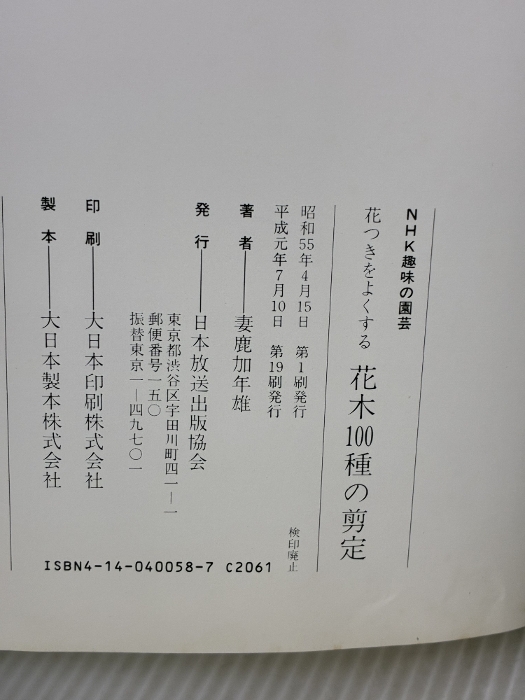 NHK趣味の園芸
花つきをよくする 花木100種の剪定
昭和55年4月15日 第1刷発行
平成元年7月10日 第19刷発行
検印廃止
著者――妻鹿加年雄
発行――日本放送出版協会
東京都渋谷区宇田川町四一―一
郵便番号一五〇
振替東京一―四九七〇一
印刷――大日本印刷株式会社
製本――大日本製本株式会社
ISBN4-14-040058-7 C2061